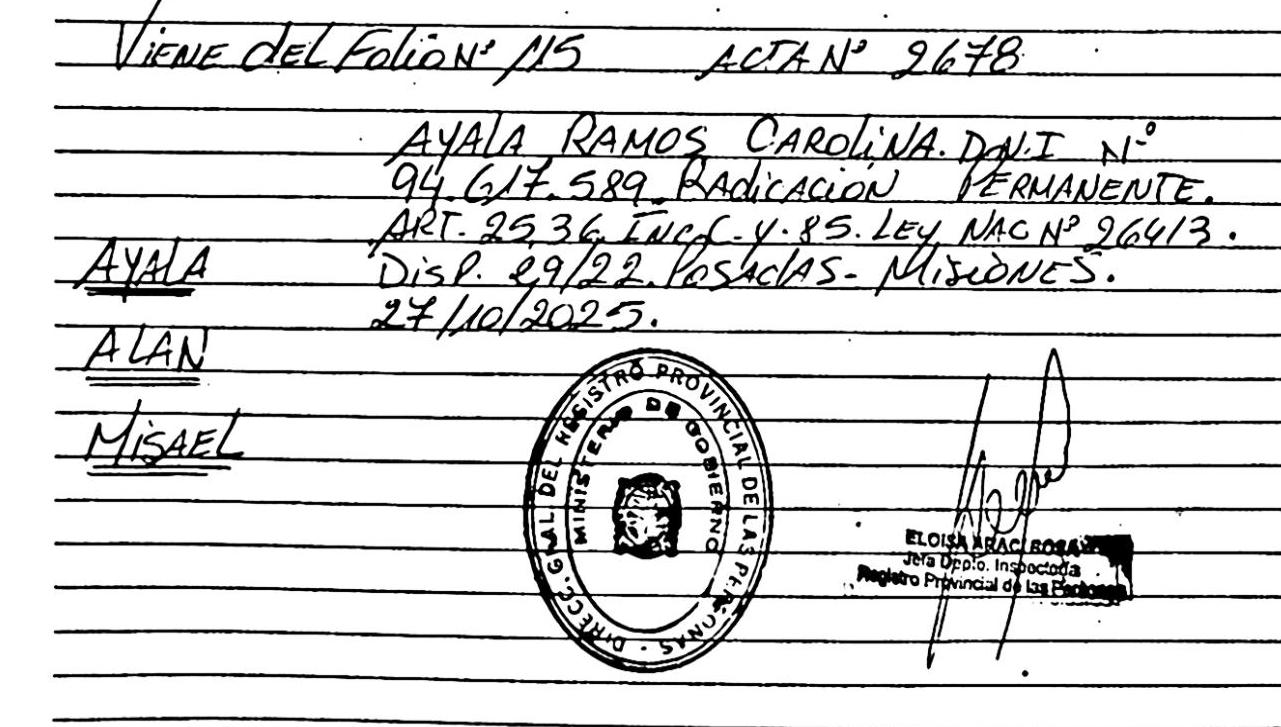 Viene del Folio Nº 115 ACTA Nº 2678
AYALA RAMOS CAROLINA. D.N.I Nº
94.617.589. RADICACIÓN PERMANENTE.
ART. 25, 36, INC. C. y. 85. LEY NAC Nº 26413.
DISP. 29/22. POSADAS - MISIONES.
27/10/2025.
AYALA
ALAN
MISAEL
DIRECC. GRAL. DEL REGISTRO PROVINCIAL DE LAS PERSONAS -
MINISTERIO DE GOBIERNO
ELOISA ARACI
Jefa Dpto. Inspectoría
Registro Provincial de las Personas